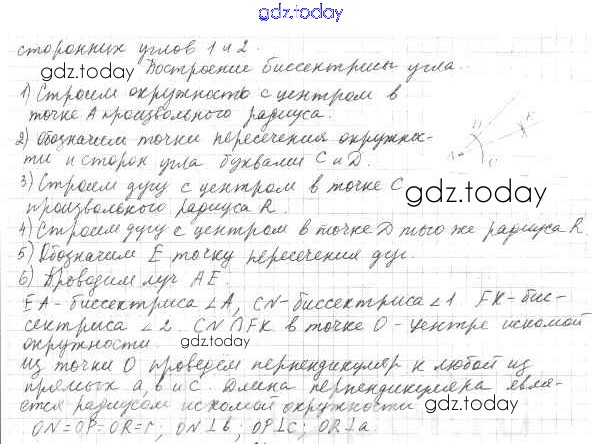 gdz.today
сторонних углов 1 и 2.
gdz.today Построение биссектрисы угла.
1) Строим окружность с центром в
точке А произвольного радиуса.
2) Обозначим точки пересечения окружнос-
ти и сторон угла буквами С и D.
3) Строим дугу с центром в точке С
произвольного радиуса R.
gdz.today
4) Строим дугу с центром в точке D того же радиуса R.
5) Обозначим E точку пересечения дуг.
6) Проводим луч AE.
EA - биссектриса ∠A, CN - биссектриса ∠1 FK - бис-
сектриса ∠2. CN ∩ FK в точке O - центре искомой
окружности.
gdz.today
Из точки O проведём перпендикуляр к любой из
прямых a, b и c. Длина перпендикуляра явля-
ется радиусом искомой окружности.
gdz.today
ON = OP = OR = r, ON ⊥ b, OP ⊥ c, OR ⊥ a.